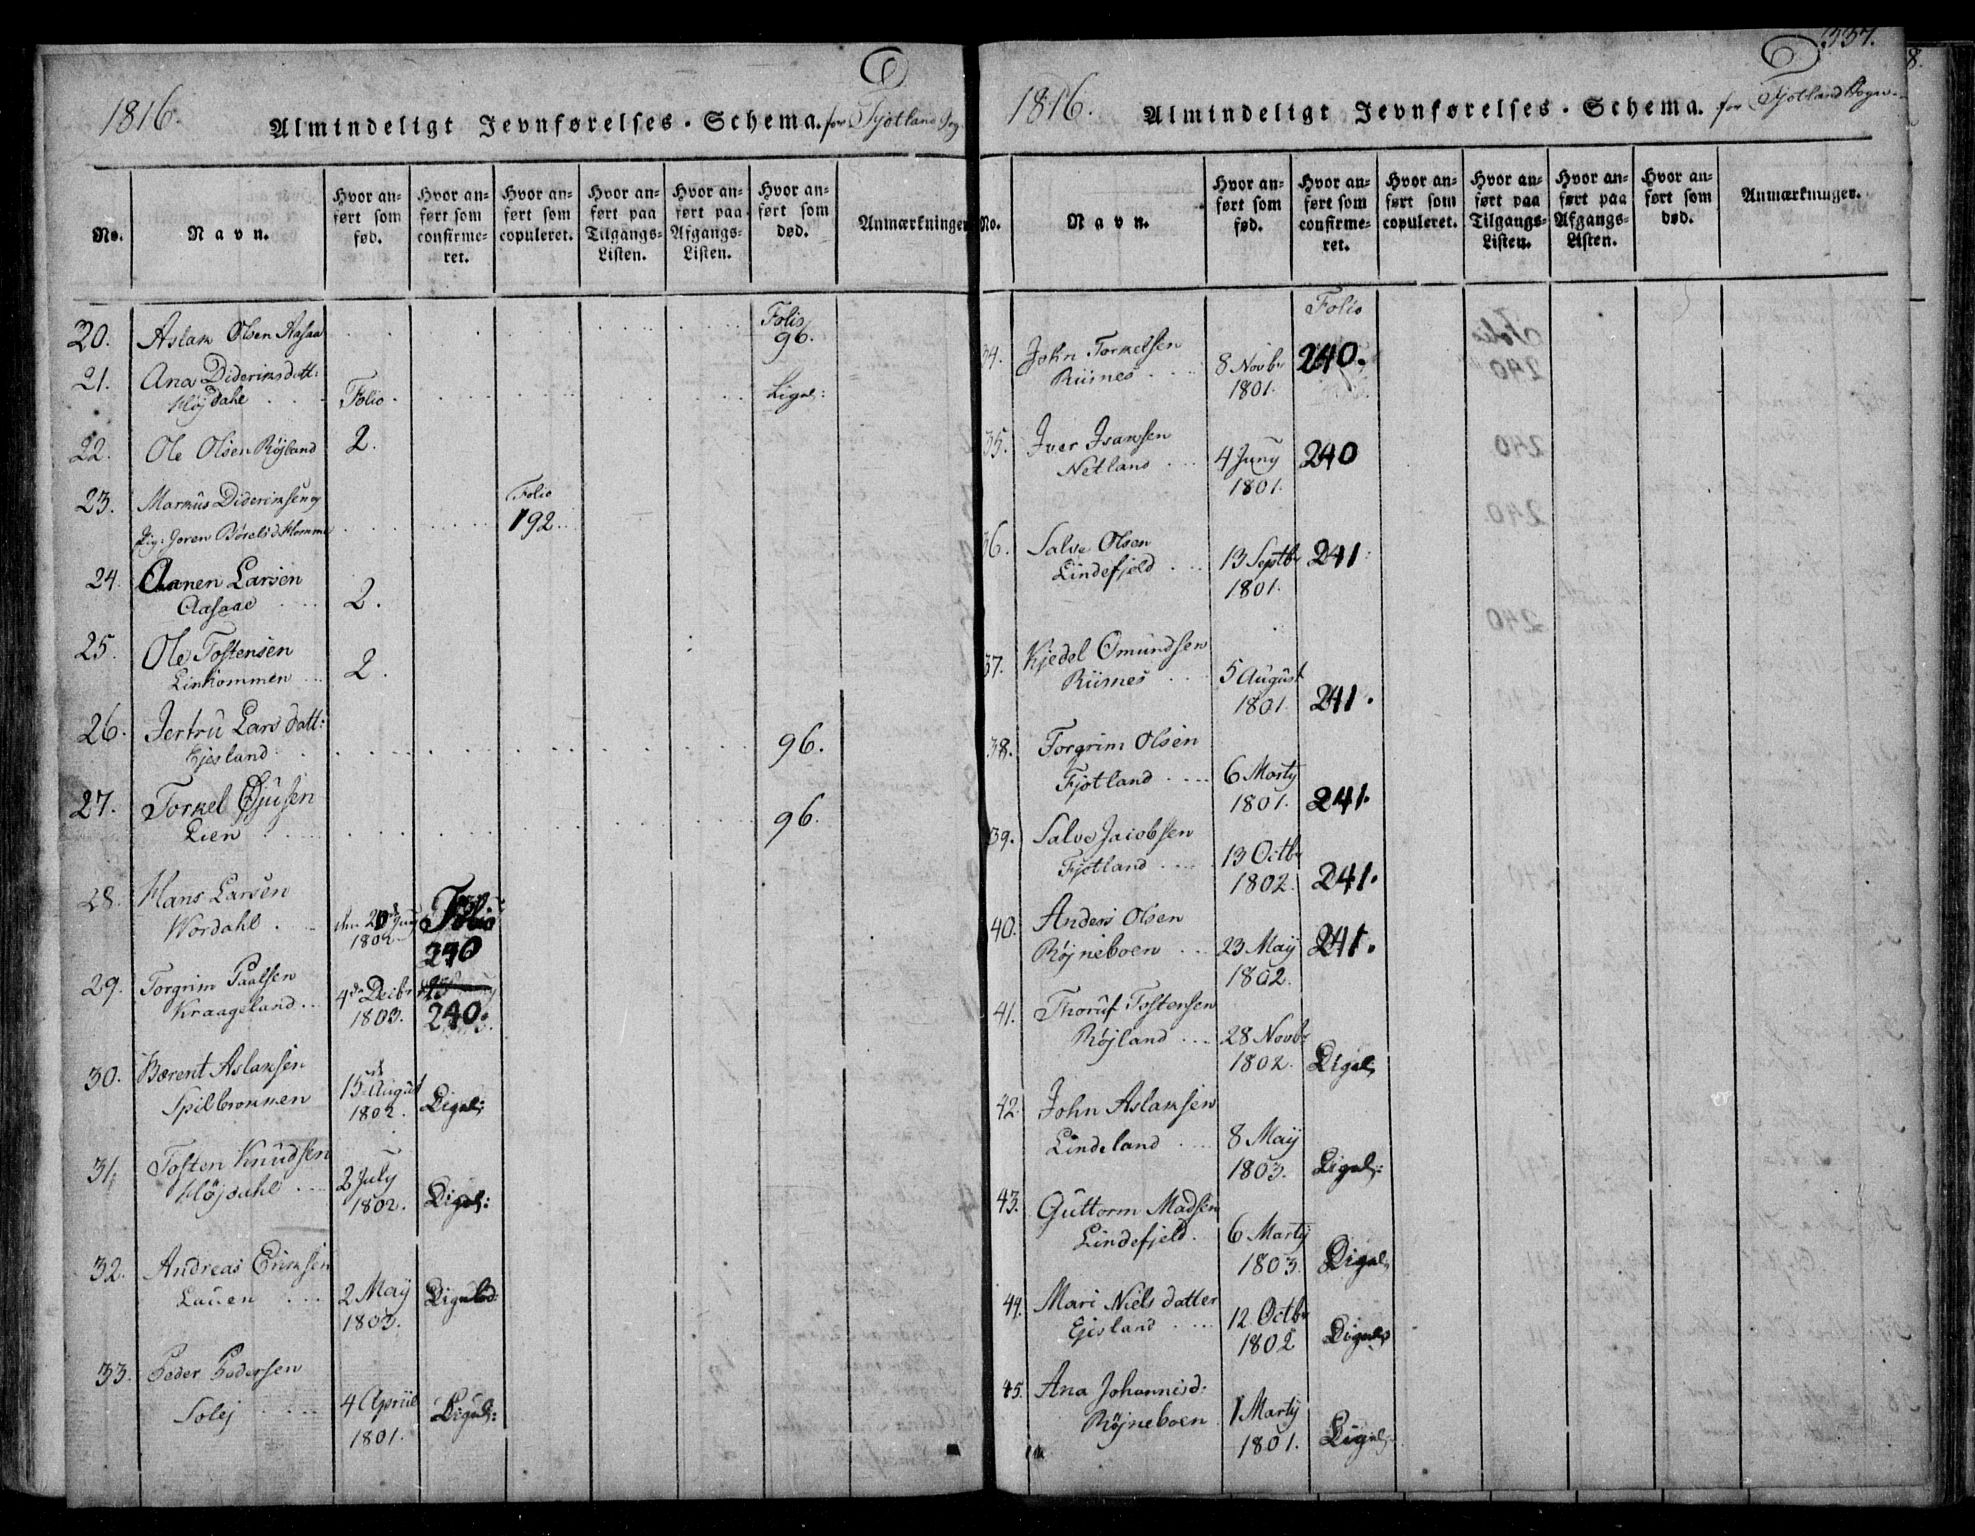 1816.
Almindeligt Jevnførelses-Schema. for Fjotland Sog
No.
Navn.
Hvor an-
ført som
fød.
Hvor an-
ført som
confirme-
ret.
Hvor an-
ført som
copuleret.
Hvor an-
ført paa
Tilgangs-
Listen.
Hvor an-
ført paa
Afgangs-
Listen.
Hvor an-
ført som
død.
Anmærkninger
20. Aslak Olsen Aasaa Folio 96.
21. Ana Dideriksdatt:
Høj dahl Folio. Ligel:
22. Ole Olsen Røjland 2.
23. Markus Dideriksen og Folio
Pig: Joren Børels d. Homme 192
24. Aanen Larsen
Aasaae 2.
25. Ole Tostensen
Linkommen 2.
26. Jertru Lars datt:
Ejesland 96.
27. Torkel Gjusen
Lien 96.
28. Hans Larsen Folio
Wordahl den 20 Juny 240
1802
29. Torgrim Paalsen
Kraageland 4de Decbr 240.
1803.
30. Bærent Aslaksen
Spilbrokken 15 August Ligel:
1802.
31. Tosten Knudsen
Højdahl 2 July Ligel:
1802.
32. Andreas Eriksen
Lauen 2 May Ligeled:
1803.
33. Peder Pedersen
Solej 4 Apriil Ligel:
1801.
337.
1816.
Almindeligt Jevnførelses-Schema. for Fjotland Sogn
No.
Navn.
Hvor an-
ført som
fød.
Hvor an-
ført som
confirme-
ret.
Hvor an-
ført som
copuleret.
Hvor an-
ført paa
Tilgangs-
Listen.
Hvor an-
ført paa
Afgangs-
Listen.
Hvor an-
ført som
død.
Anmærkninger.
Folio
34. John Torkelsen
Riisnes 8 Novbr 240.
1801.
35. Iver Isaksen
Netland 4 Juny 240
1801.
36. Salve Olsen
Lindefjeld 13 Septbr 241
1801.
37. Kjedel Omundsen
Riisnes 5 August
1801. 241.
38. Torgrim Olsen
Fjotland 6 Marty
1801. 241.
39. Salve Jacobsen
Fjotland 13 Octbr
1802. 241.
40. Anders Olsen
Røjneboen 23 May 241.
1802.
41. Thoruf Tostensen
Røjland 28 Novbr
1802. Ligel:
42. John Aslaksen
Lindeland 8 May
1803. Ligel:
43. Guttorm Madsen
Lindefjeld. 6 Marty
1803. Ligel:
44. Mari Niels datter
Ejesland 12 Octbr
1802 Ligel:
45. Ana Johannisd:
Røjneboen 1 Marty
1801. Ligel:
8.